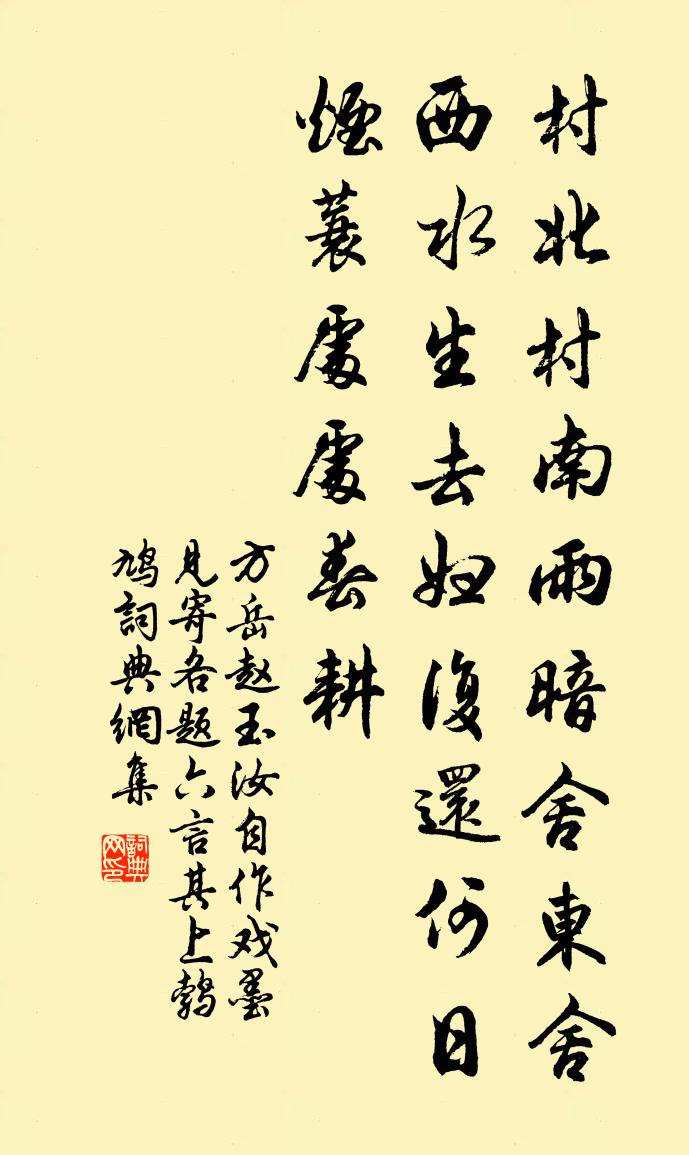 村北村南雨暗舍東舍
西水生去妇復還何日
煙蓑處處春耕
方岳赵玉汝自作戏墨
見寄各题六言其上鹁
鳩詞典網集
詞典网印